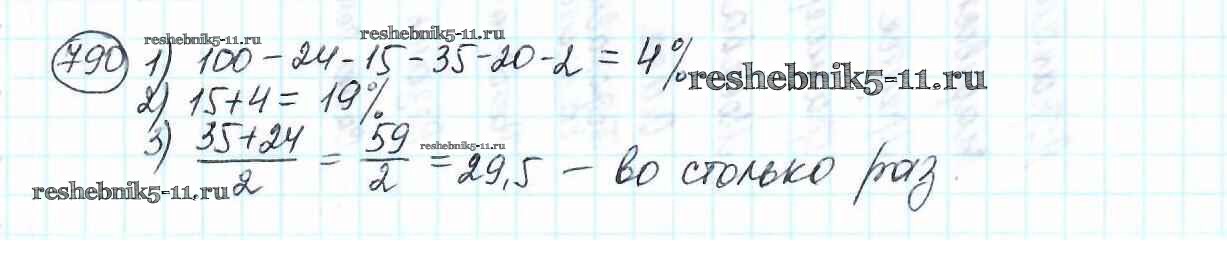 reshebnik5-11.ru reshebnik5-11.ru
790 1) 100 - 24 - 15 - 35 - 20 - 2 = 4% reshebnik5-11.ru
2) 15 + 4 = 19%
3) (35 + 24)/2 = 59/2 = 29,5 — во столько раз.
reshebnik5-11.ru
reshebnik5-11.ru